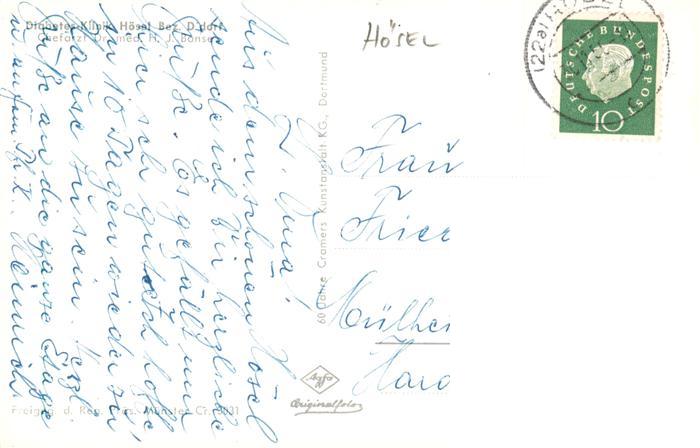 Diabetes-Klinik Hösel Bez. D'dorf
Chefarzt Dr. med. H. J. Banse
HÖSEL
(22a) HÖSEL
DEUTSCHE BUNDESPOST
10
Aus dem schönen Hösel
sende ich Dir herzliche
Grüße. Es gefällt mir
hier sehr gut. Ich hoffe
in 10 Tagen wieder zu
Hause zu sein. Herzl.
Grüße an die ganze Etage
Heinrich
Frau
Frier
Mülhei
Hard
60 Jahre Cramers Kunstanstalt KG., Dortmund
Agfa
Originalfoto
Freigeg. d. Reg. Präs. Münster Cr. 3031